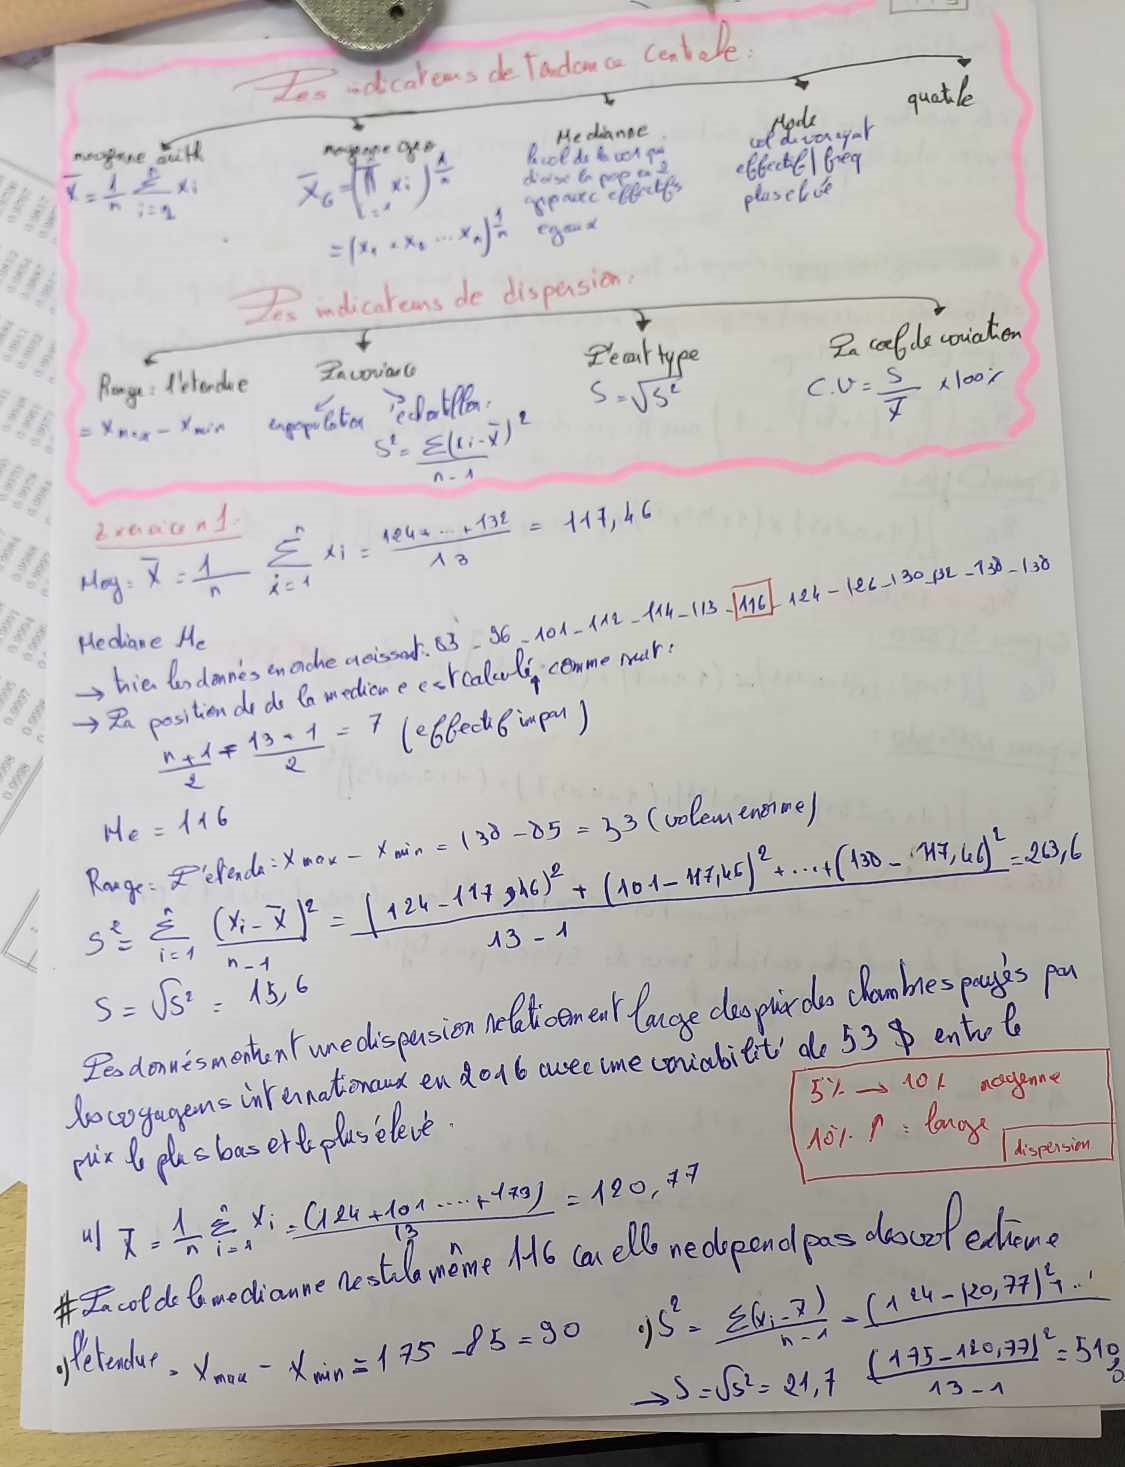 Les indicateurs de Tendance Centrale :
moyenne arith
X̄ = 1/n Σ xi
i=1
moyenne geo
X̄G = (Π xi)^1/n
= (x1 . x2 ... xn)^1/n
Medianne
la val de la var qui
divise la pop en 2
grp avec effectifs
egaux
Mode
val du varayat
effectif / freq
plus elvé
quatile
Les indicateurs de dispersion :
Range : l'étendue
= xmax - xmin
La variance
en population
échantillon :
S² = Σ(xi - x̄)² / n-1
L'ecart type
S = √S²
La coef de variation
C.V = S/X̄ x100%
Exercice n 1 :
Moy : X̄ = 1/n Σ(i=1→n) xi = 124+...+132 / 13 = 117,46
Mediane Me
→ trier les données en ordre croissant : 85 - 96 - 101 - 112 - 114 - 113 - 116 - 124 - 126 - 130 - 132 - 138 - 138
→ La position de de la mediane est calculé, comme suit :
n+1/2 = 13+1/2 = 7 (effectif impair)
Me = 116
Range : L'étendu : xmax - xmin = 138 - 85 = 53 (valeur enorme)
S² = Σ(i=1→n) (xi - x̄)² / n-1 = (124-117,46)² + (101-117,46)² + ... + (138-117,46)² / 13-1 = 263,6
S = √S² = 15,6
Les donnés montrent une dispersion relativement large des prix des chambres payés par
les voyageurs internationaux en 2016 avec une variabilité de 53 $ entre le
prix le plus bas et le plus élevé.
5% → 10% moyenne
10% ↑ : large
dispersion
4) X̄ = 1/n Σ(i=1→n) xi = (124+101 ....+173) / 13 = 120,77
# La val de la medianne reste la même 116 car elle ne depend pas des val extrême
•) l'étendue = xmax - xmin = 175 - 85 = 90
•) S² = Σ(xi - x̄) / n-1 = (124-120,77)² + ...
(175-120,77)² / 13-1 = 510,
→ S = √S² = 21,7